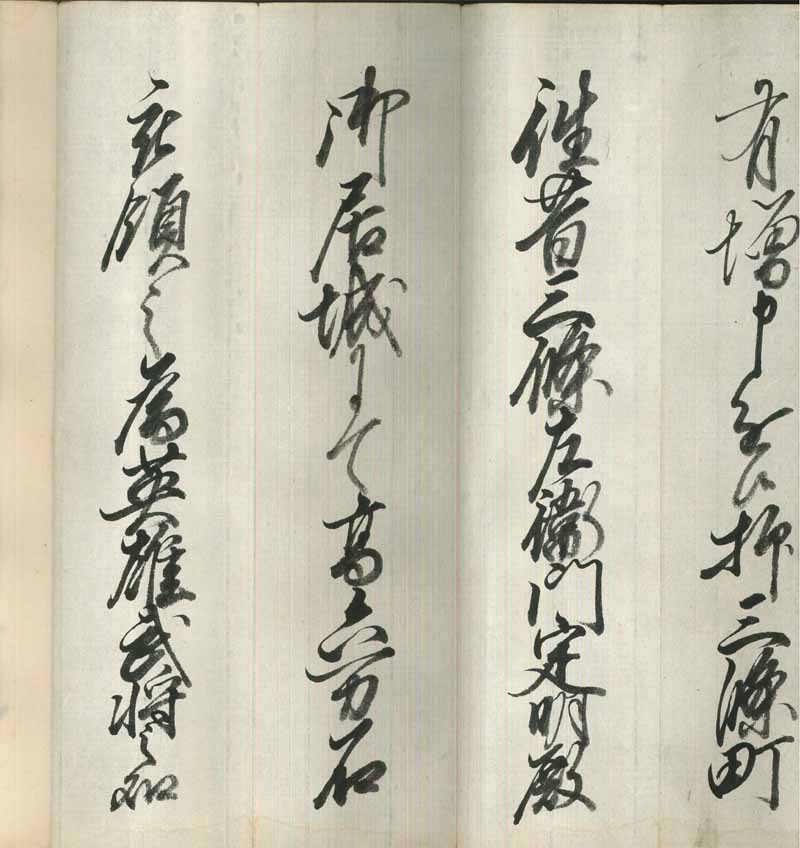 有増申 抑三條町
往昔三條左衛門定明殿
御居城にて高六万石
領之為英雄武将之